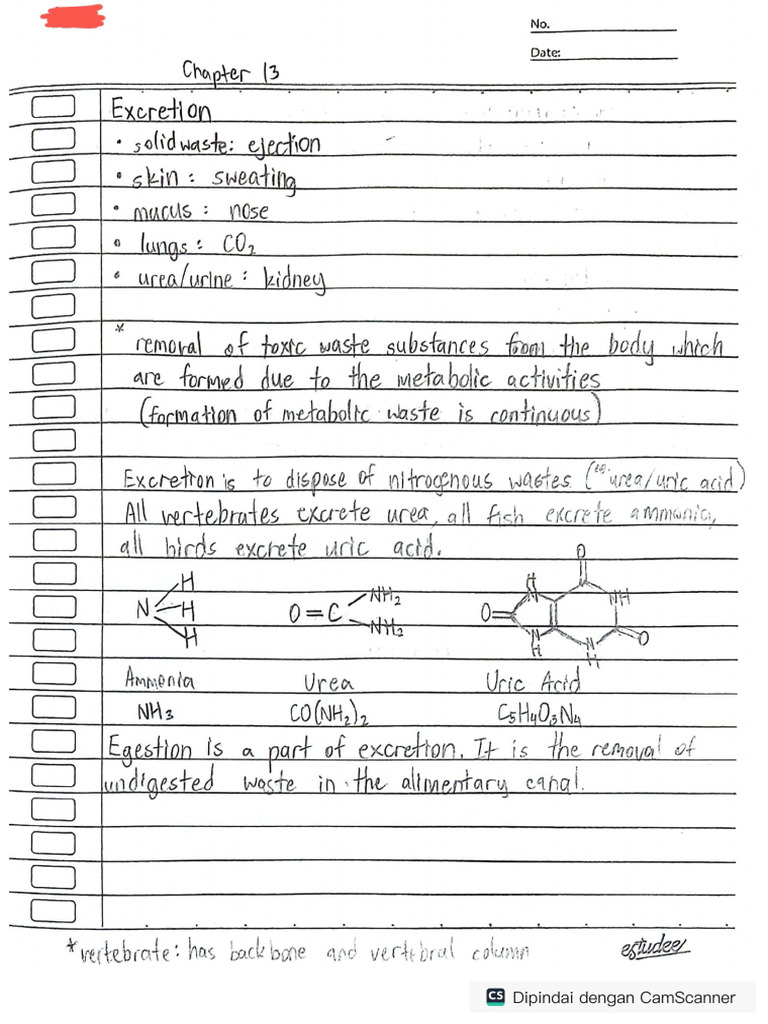 No.
Date:
Chapter 13
Excretion
• solid waste: ejection
• skin : sweating
• mucus : nose
• lungs : CO₂
• urea/urine : kidney
* removal of toxic waste substances from the body which
are formed due to the metabolic activities
(formation of metabolic waste is continuous)
Excretion is to dispose of nitrogenous wastes (eg. urea/uric acid)
All vertebrates excrete urea, all fish excrete ammonia,
all birds excrete uric acid.
N H H H
O=C NH₂ NH₂
O O O NH H N N H N H
Ammonia Urea Uric Acid
NH₃ CO(NH₂)₂ C₅H₄O₃N₄
Egestion is a part of excretion. It is the removal of
undigested waste in the alimentary canal.
*vertebrate: has backbone and vertebral column
estudee
CS Dipindai dengan CamScanner